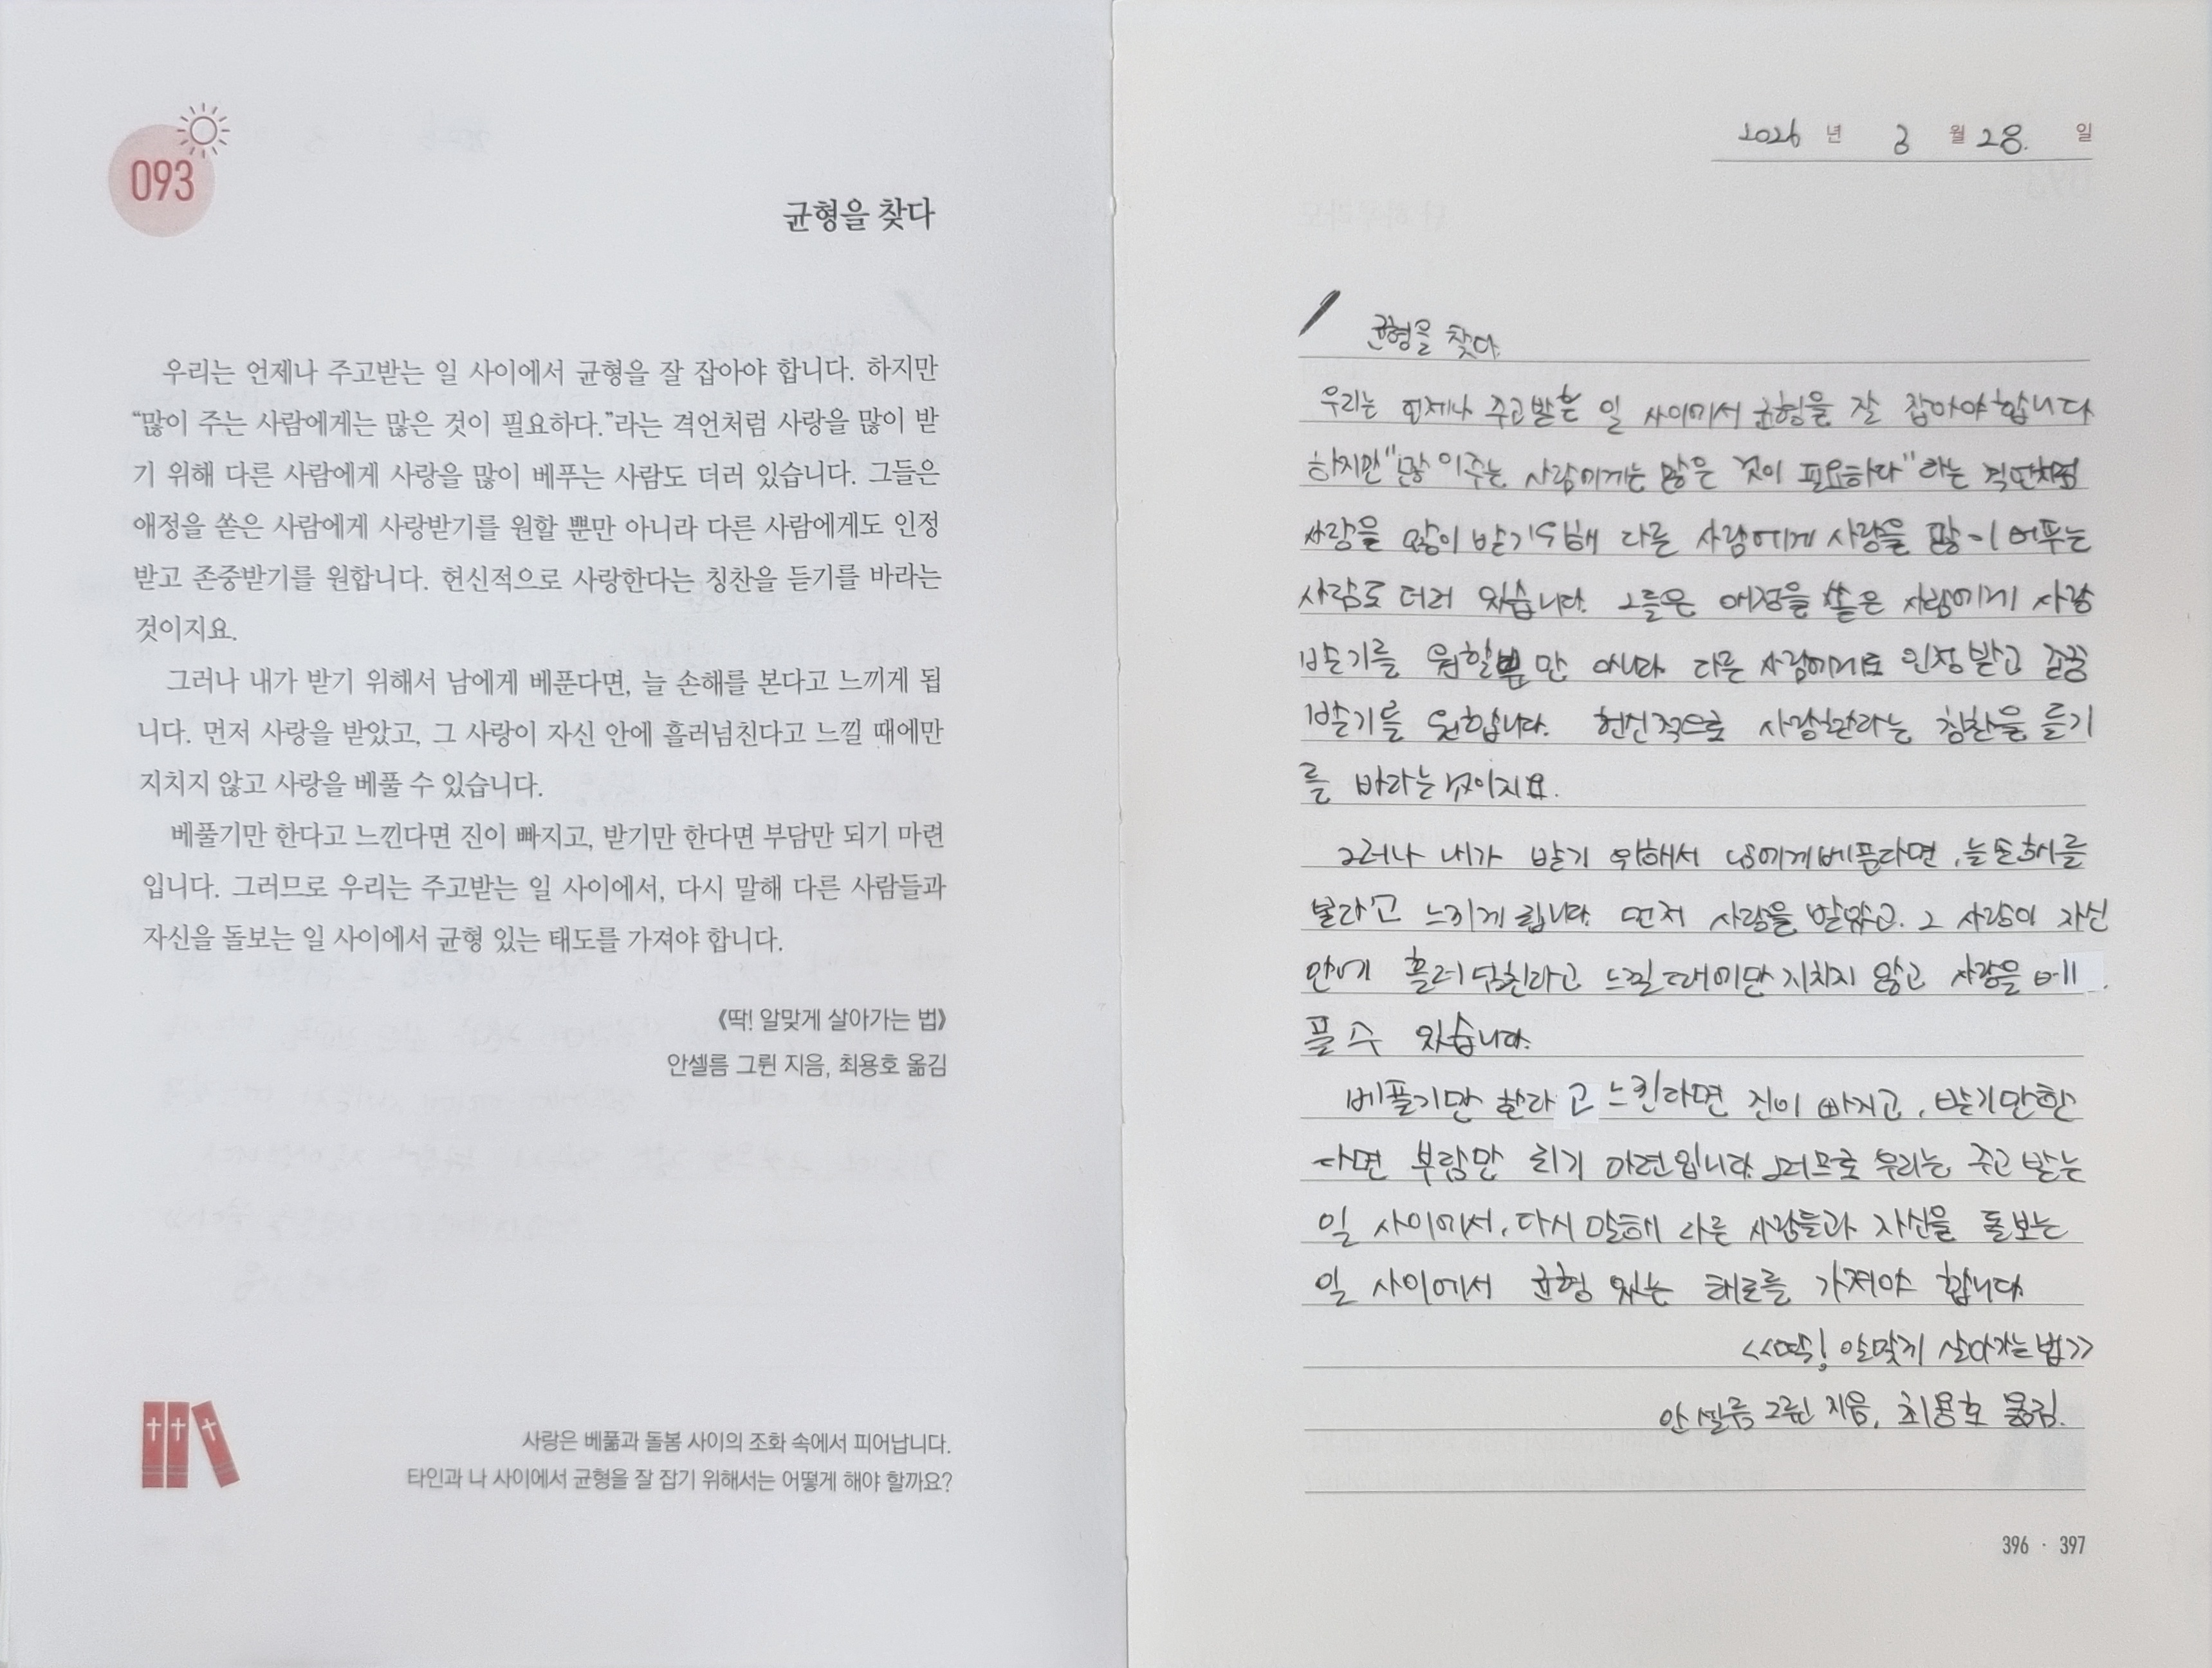 093
균형을 찾다
우리는 언제나 주고받는 일 사이에서 균형을 잘 잡아야 합니다. 하지만
“많이 주는 사람에게는 많은 것이 필요하다.”라는 격언처럼 사랑을 많이 받
기 위해 다른 사람에게 사랑을 많이 베푸는 사람도 더러 있습니다. 그들은
애정을 쏟은 사람에게 사랑받기를 원할 뿐만 아니라 다른 사람에게도 인정
받고 존중받기를 원합니다. 헌신적으로 사랑한다는 칭찬을 듣기를 바라는
것이지요.
그러나 내가 받기 위해서 남에게 베푼다면, 늘 손해를 본다고 느끼게 됩
니다. 먼저 사랑을 받았고, 그 사랑이 자신 안에 흘러넘친다고 느낄 때에만
지치지 않고 사랑을 베풀 수 있습니다.
베풀기만 한다고 느낀다면 진이 빠지고, 받기만 한다면 부담만 되기 마련
입니다. 그러므로 우리는 주고받는 일 사이에서, 다시 말해 다른 사람들과
자신을 돌보는 일 사이에서 균형 있는 태도를 가져야 합니다.
《딱! 알맞게 살아가는 법》
안셀름 그륀 지음, 최용호 옮김
사랑은 베풂과 돌봄 사이의 조화 속에서 피어납니다.
타인과 나 사이에서 균형을 잘 잡기 위해서는 어떻게 해야 할까요?
2026 년 3 월 28. 일
균형을 찾다.
우리는 언제나 주고받는 일 사이에서 균형을 잘 잡아야 합니다
하지만 "많이주는 사람에게는 많은 것이 필요하다"라는 격언처럼
사랑을 많이 받기위해 다른 사람에게 사랑을 많이 베푸는
사람도 더러 있습니다. 그들은 애정을 쏟은 사람에게 사랑
받기를 원할뿐만 아니라 다른 사람에게도 인정받고 존중
받기를 원합니다. 헌신적으로 사랑한다는 칭찬을 듣기
를 바라는것이지요.
그러나 내가 받기 위해서 남에게베푼다면, 늘손해를
본다고 느끼게 됩니다. 먼저 사랑을 받았고. 그 사랑이 자신
안에 흘러넘친다고 느낄때에만 지치지 않고 사랑을 베
풀 수 있습니다.
베풀기만 한다고 느낀다면 진이 빠지고, 받기만한
다면 부담만 되기 마련입니다. 그러므로 우리는 주고받는
일 사이에서, 다시 말해 다른 사람들과 자신을 돌보는
일 사이에서 균형 있는 태도를 가져야 합니다
<<딱! 알맞게 살아가는법>>
안셀름 그륀 지음, 최용호 옮김.
396 · 397